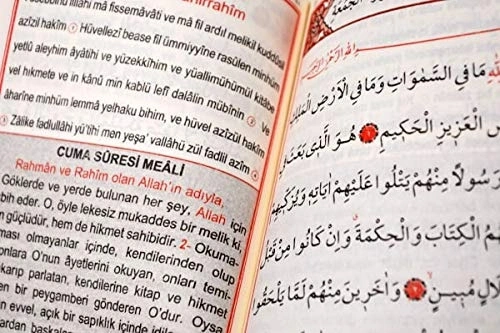 nirrahîm
fissemâvâti mâ fil ardıl melikil kuddûsil
azîzil hakîm Hüvellezî bease fil ümmiyyîne rasûlen minhüm
yetlû aleyhim âyâtihi ve yüzekkîhim ve yüallimühümül kitâbe
vel hıkmete ve in kânû min kablü lefî dalâlin mübînin
âharîne minhüm lemmâ yelhaku bihim, ve hüvel azîzül hakîm
Zâlike fadlullâhi yü'tîhi men yeşa' vallâhü zül fadlil azîm
CUMA SÛRESİ MEÂLİ
Rahmân ve Rahîm olan Allah'ın adıyla,
Göklerde ve yerde bulunan her şey, Allah için
bih eder. O, öyle lekesiz mukaddes bir melik ki,
güçlüdür, hem de hikmet sahibidir. 2- Okuma-
ması olmayanlar içinde, kendilerinden olup
onlara O'nun âyetlerini okuyan, onları temi-
karıp parlatan, kendilerine kitap ve hikmet
en bir peygamberi gönderen O'dur. Oysa
evvel, açık bir sapıklık içinde
الجمعة
مَا فِي السَّمٰوَاتِ وَمَا فِي الْاَرْضِ الْمَلِكِ
الْعَزِيزِ الْحَكِيمِ ١ هُوَ الَّذِي بَعَثَ
رَسُولًا مِنْهُمْ يَتْلُوا عَلَيْهِمْ اٰيَاتِهِ وَيُزَكِّيهِمْ
الْكِتَابَ وَالْحِكْمَةَ وَاِنْ كَانُوا مِنْ قَبْلُ
ضَلَالٍ مُبِينٍ ٢ وَاٰخَرِينَ مِنْهُمْ لَمَّا يَلْحَقُوا